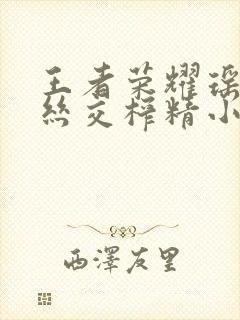 王者荣耀瑶
丝交榨精小
西澤友里